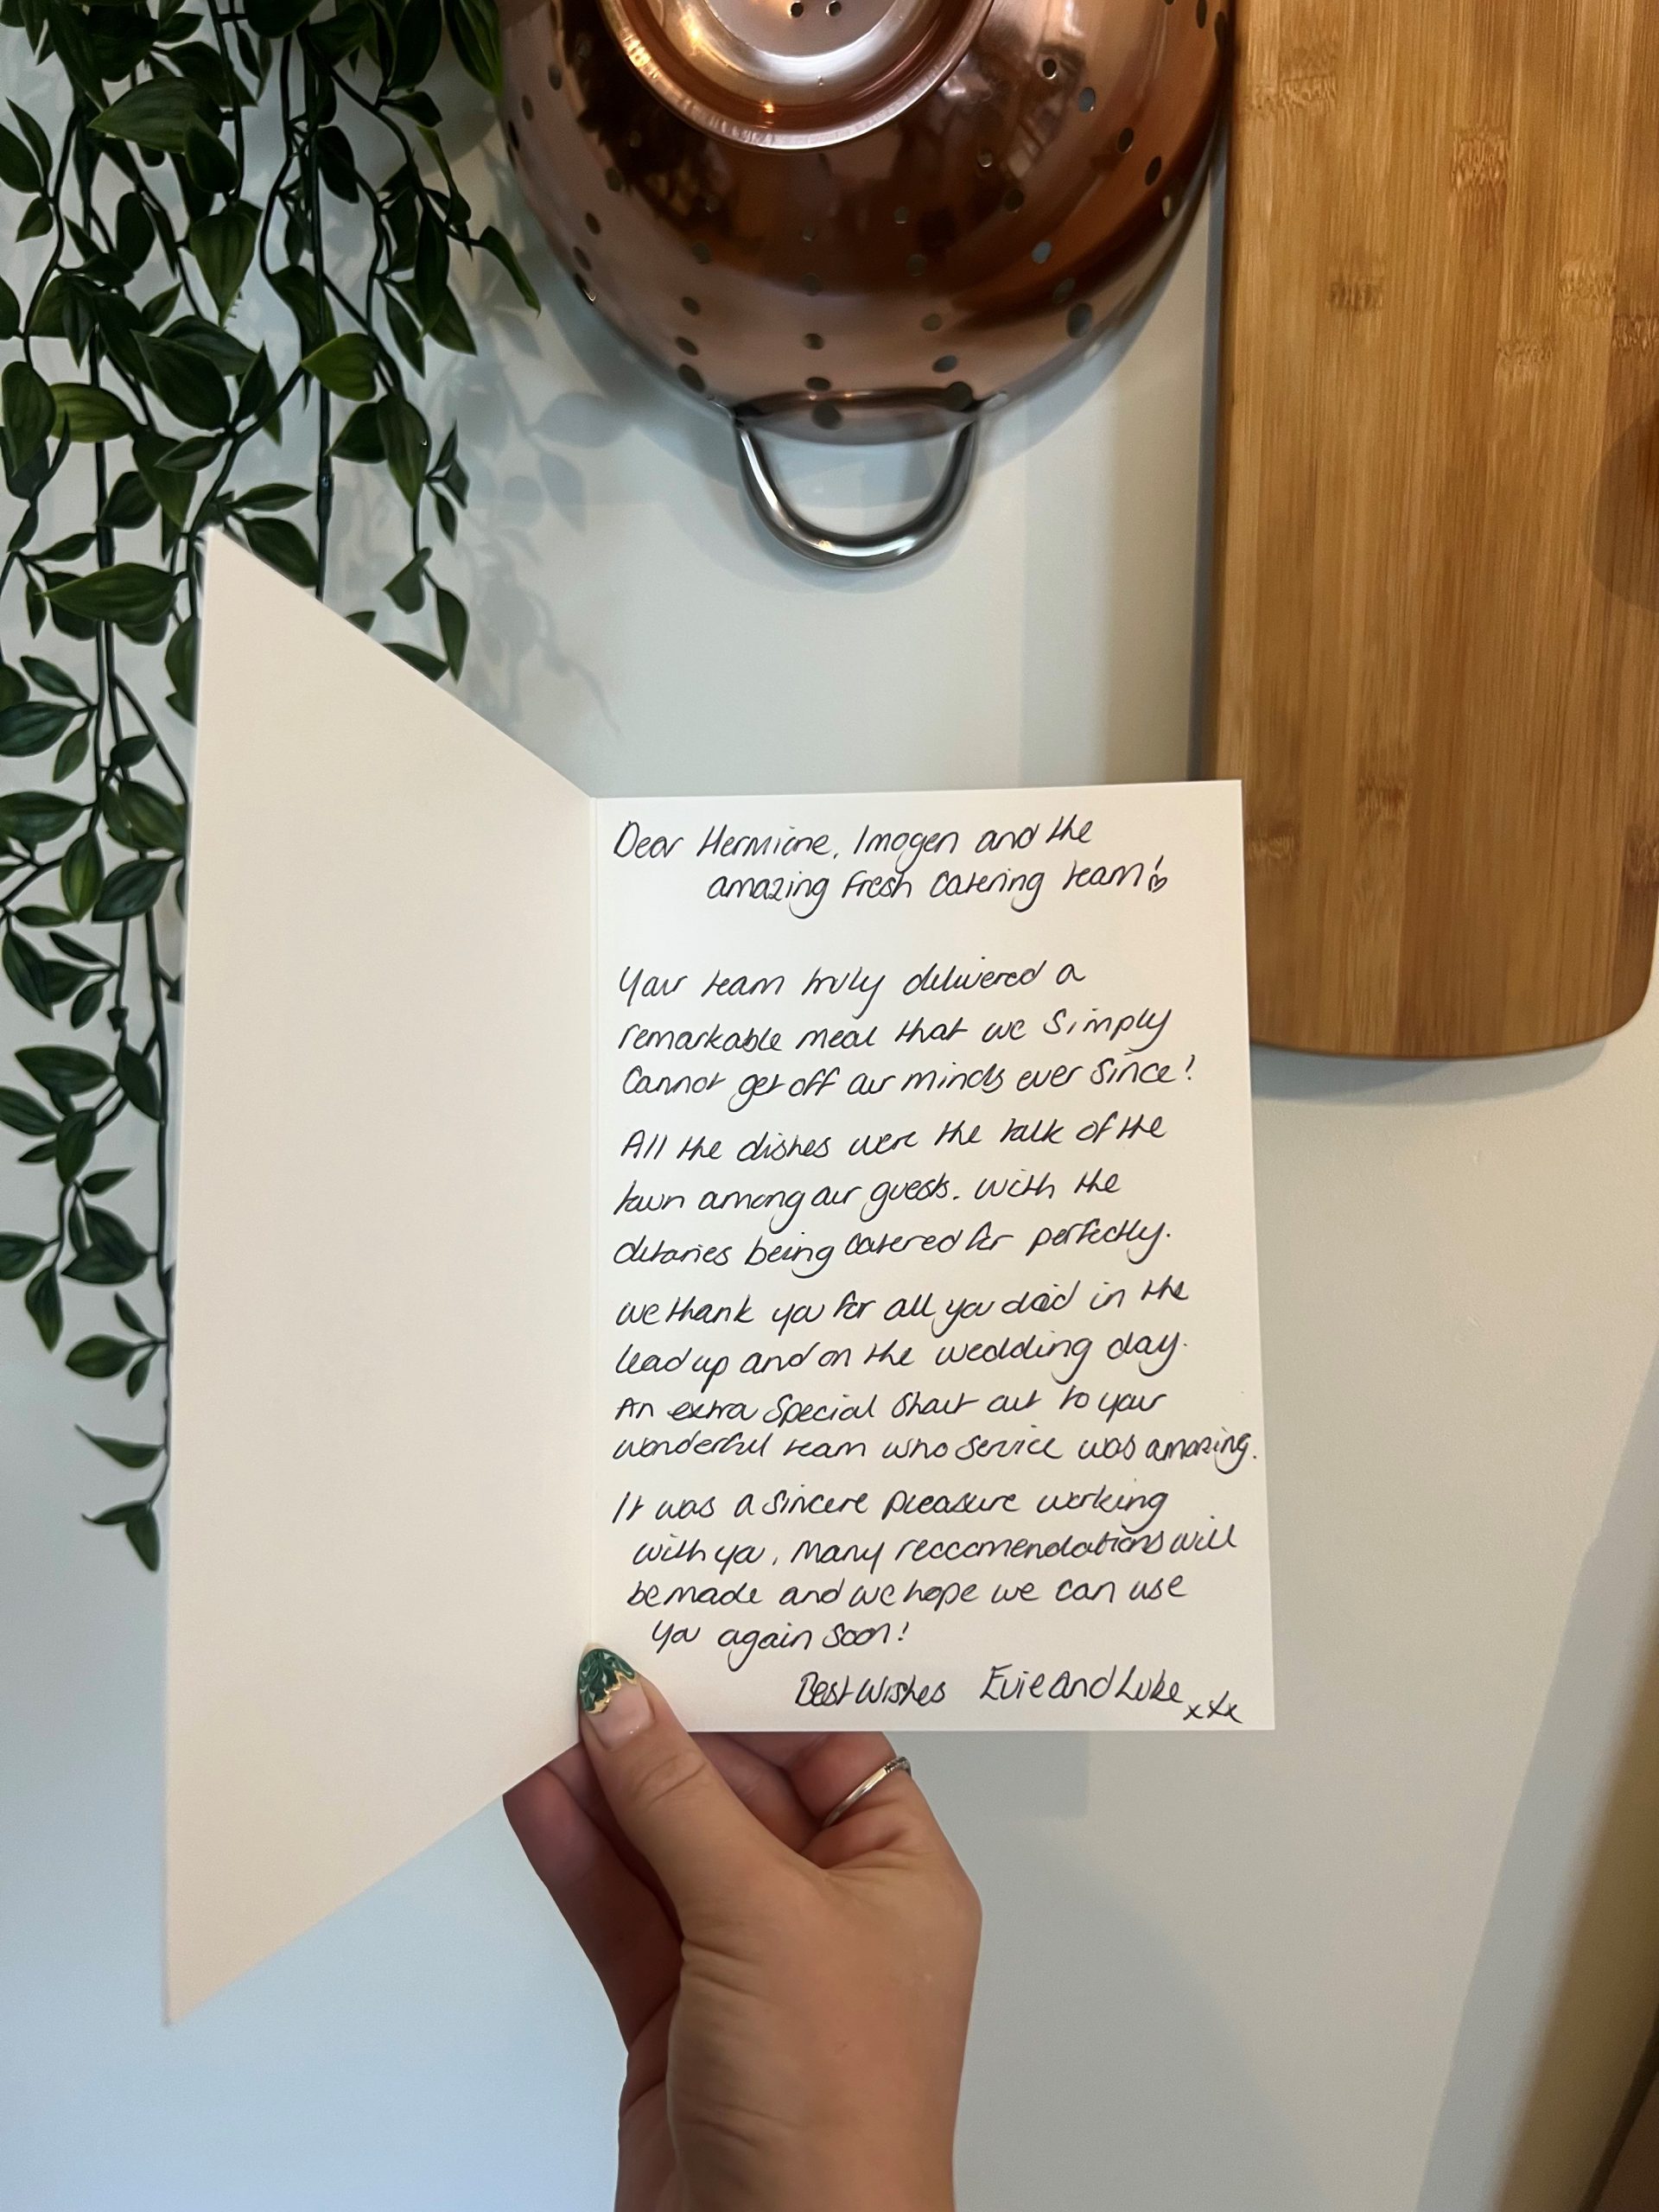 Dear Hermione, Imogen and the
amazing Fresh Catering team!
Your team truly delivered a
remarkable meal that we simply
cannot get off our minds ever since!
All the dishes were the talk of the
town among our guests. With the
ditaries being catered for perfectly.
we thank you for all you did in the
lead up and on the wedding day.
An extra special shout out to your
wonderful team who service was amazing.
It was a sincere pleasure working
with you, many reccomendations will
be made and we hope we can use
you again soon!
Best Wishes Evie and Luke xxx